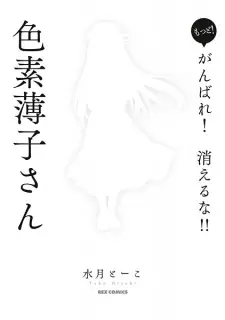 もっと!
がんばれ! 消えるな!!
色素薄子さん
水月とーこ
Toko Mizuki
REX COMICS